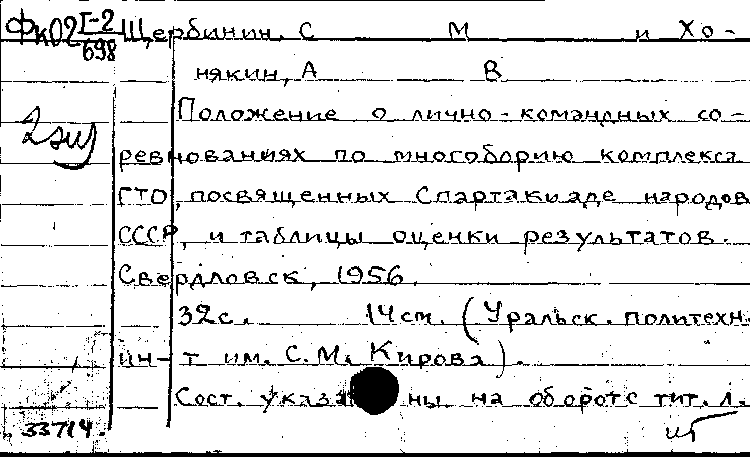 ФК02 Г-2/698 Щербинин, С М и Хо-
някин, А В
Положение о лично-командных со-
2 экз
ревнованиях по многоборию комплекса
ГТО, посвященных Спартакиаде народов
СССР, и таблицы оценки результатов.
Свердловск, 1956.
32с. 14см. (Уральск. политехн.
ин-т им. С.М. Кирова).
Сост. указаны на обороте тит. л.
33714.